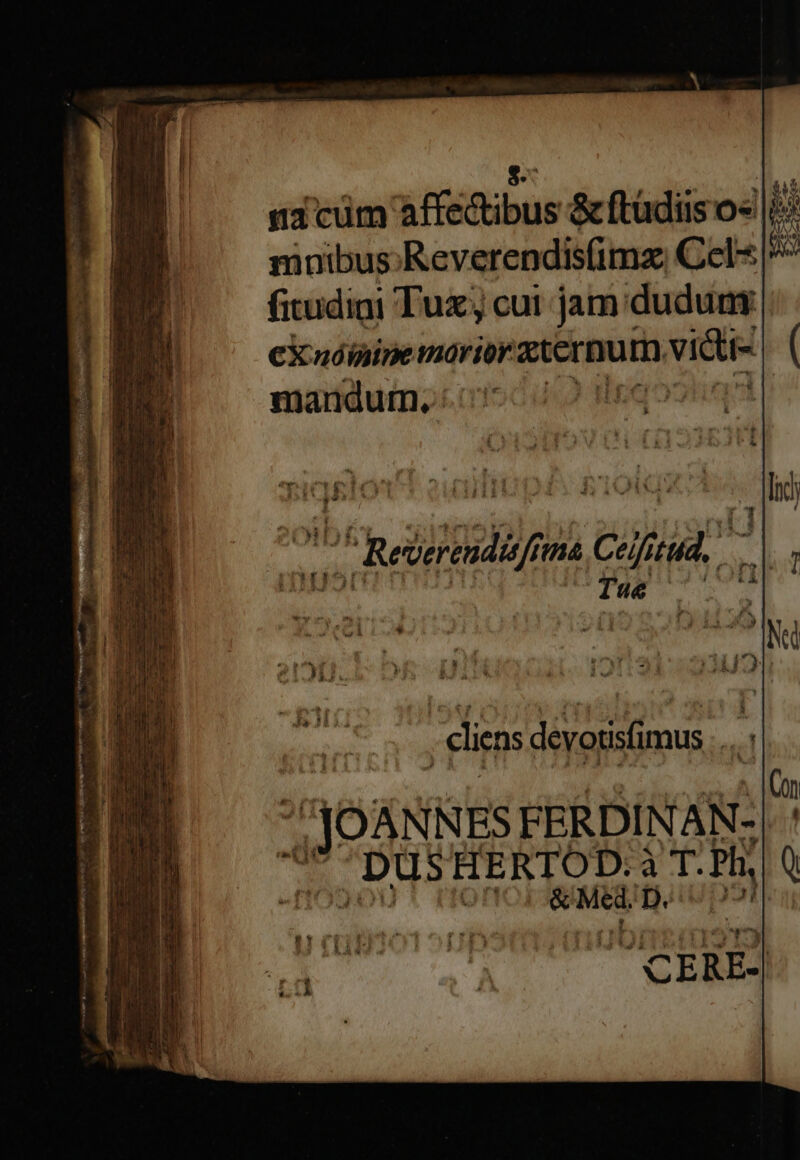 nà cùm affectibus & ſtudiis o-
mnibus Reverendisſimæ Cel-
ſitudini Tuæ, cui jam dudum
ex nomine morior æternum victi-
mandum.
Reverendisſimæ Celſitud.
Tuæ
cliens devotisſimus
JOANNES FERDINAN-
DUS HERTOD. à T. Ph.
& Med. D.
CERE-